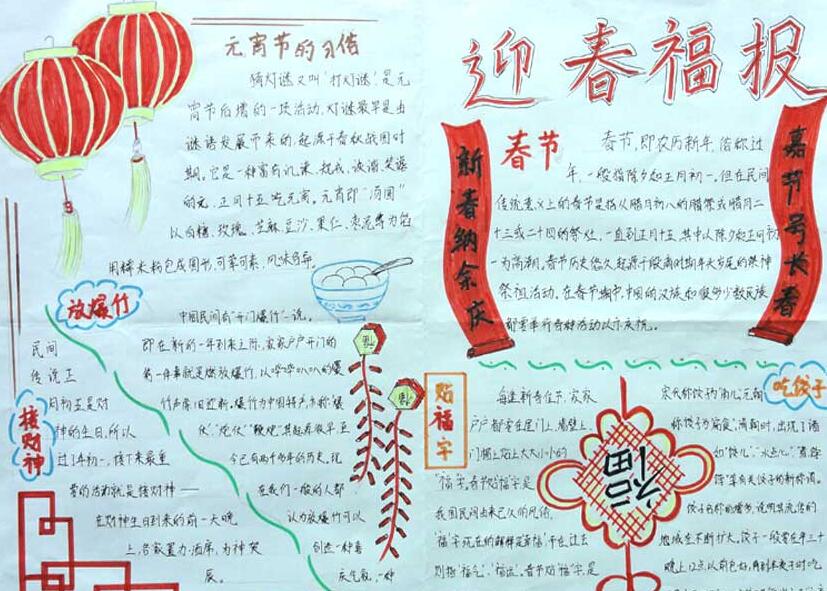 迎春福报
元宵节的习俗
猜灯谜又叫“打灯谜”,是元
宵节后增的一项活动,灯谜最早是由
谜语发展而来的,起源于春秋战国时
期。它是一种富有讥谏、规戒、诙谐、笑谑
的元,正月十五吃元宵。元宵即“汤圆”
以白糖、玫瑰、芝麻、豆沙、果仁、枣泥等为馅
用糯米粉包成圆形,可荤可素,风味各异。
新春纳余庆
嘉节号长春
春节
春节,即农历新年,俗称过
年,一般指除夕和正月初一。但在民间
传统意义上的春节是指从腊月初八的腊祭或腊月二
十三或二十四的祭灶,一直到正月十五,其中以除夕和正月初
一为高潮。春节历史悠久,起源于殷商时期年头岁尾的祭神
祭祖活动。在春节期间,中国的汉族和很多少数民族
都要举行各种活动以示庆祝。
放爆竹
中国民间有“开门爆竹”一说。
即在新的一年到来之际,家家户户开门的
第一件事就是燃放爆竹,以哔哔叭叭的爆
竹声除旧迎新。爆竹为中国特产,亦称“爆
仗”、“炮仗”、“鞭炮”。其起源很早,至
今已有两千多年的历史,现
在我们一般的人都
认为放爆竹可以
创造一种喜
庆气氛,一种
接财神
民间
传说正
月初五是财
神的生日,所以
过了年初一,接下来最重
要的活动就是接财神——
在财神生日到来的前一天晚
上,各家置办酒席,为神贺
辰。
贴福字
每逢新春佳节,家家
户户都要在屋门上、墙壁上、
门楣上贴上大大小小的
“福”字。春节贴“福”字,是
我国民间由来已久的风俗,
“福”字现在的解释是“幸福”,而在过去
则指“福气”、“福运”。春节贴“福”字,是
福
吃饺子
宋代称饺子为“角儿”,元朝
称饺子为“扁食”。清朝时,出现了诸
如“饺儿”、“水点心”、“煮饽
饽”等有关饺子的新称谓。
饺子名称的增多,说明其流传的
地域在不断扩大。饺子一般要在年三十
晚上12点以前包好,待到半夜子时吃